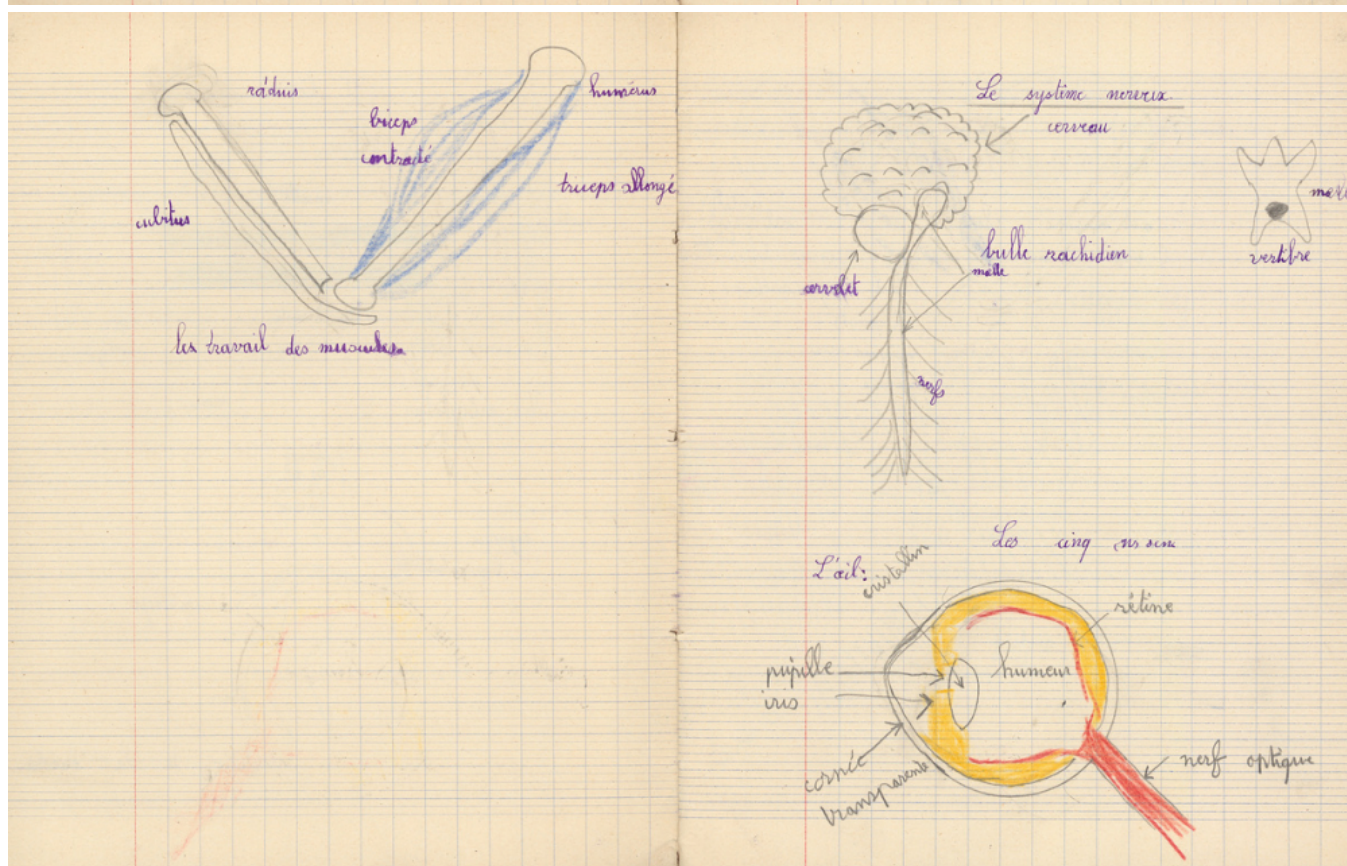 radius
humérus
biceps
contracté
triceps allongé
cubitus
les travail des muscules
Le système nerveux
cerveau
bulle rachidien
mœlle
cervelet
nerfs
vertèbre
Les cinq sens
L'œil:
cristallin
rétine
pupille
humeur
iris
cornée
transparente
nerf optique